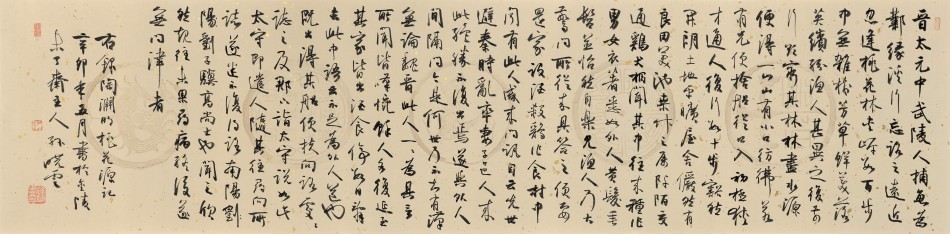 晋太元中武陵人捕魚為
業緣溪行忘路之遠近
忽逢桃花林夾岸數百步
中無雜樹芳草鮮美落
英繽紛漁人甚異之復前
行欲窮其林林盡水源
便得一山山有小口仿佛若
有光便捨船從口入初極狹
才通人復行數十步豁然
開朗土地平曠屋舍儼然有
良田美池桑竹之屬阡陌交
通鷄犬相聞其中往來種作
男女衣著悉如外人黄髮垂
髫並怡然自樂見漁人乃大
驚問所從來具答之便要
還家設酒殺鷄作食村中
聞有此人咸來問訊自云先世
避秦時亂率妻子邑人來
此絶境不復出焉遂與外人
間隔問今是何世乃不知有漢
無論魏晋此人一一為具言
所聞皆嘆惋餘人各復延至
其家皆出酒食停數日辭
去此中語云不足為外人道也
既出得其船便扶向路處處
誌之及郡下詣太守説如此
太守即遣人隨其往尋向所
誌遂迷不復得路南
陽劉子驥高尚士也聞之欣
然規往未果尋病終後遂
無問津者
右録陶淵明桃花源記
辛卯年五月書於金陵
未了齋主人孫曉雲